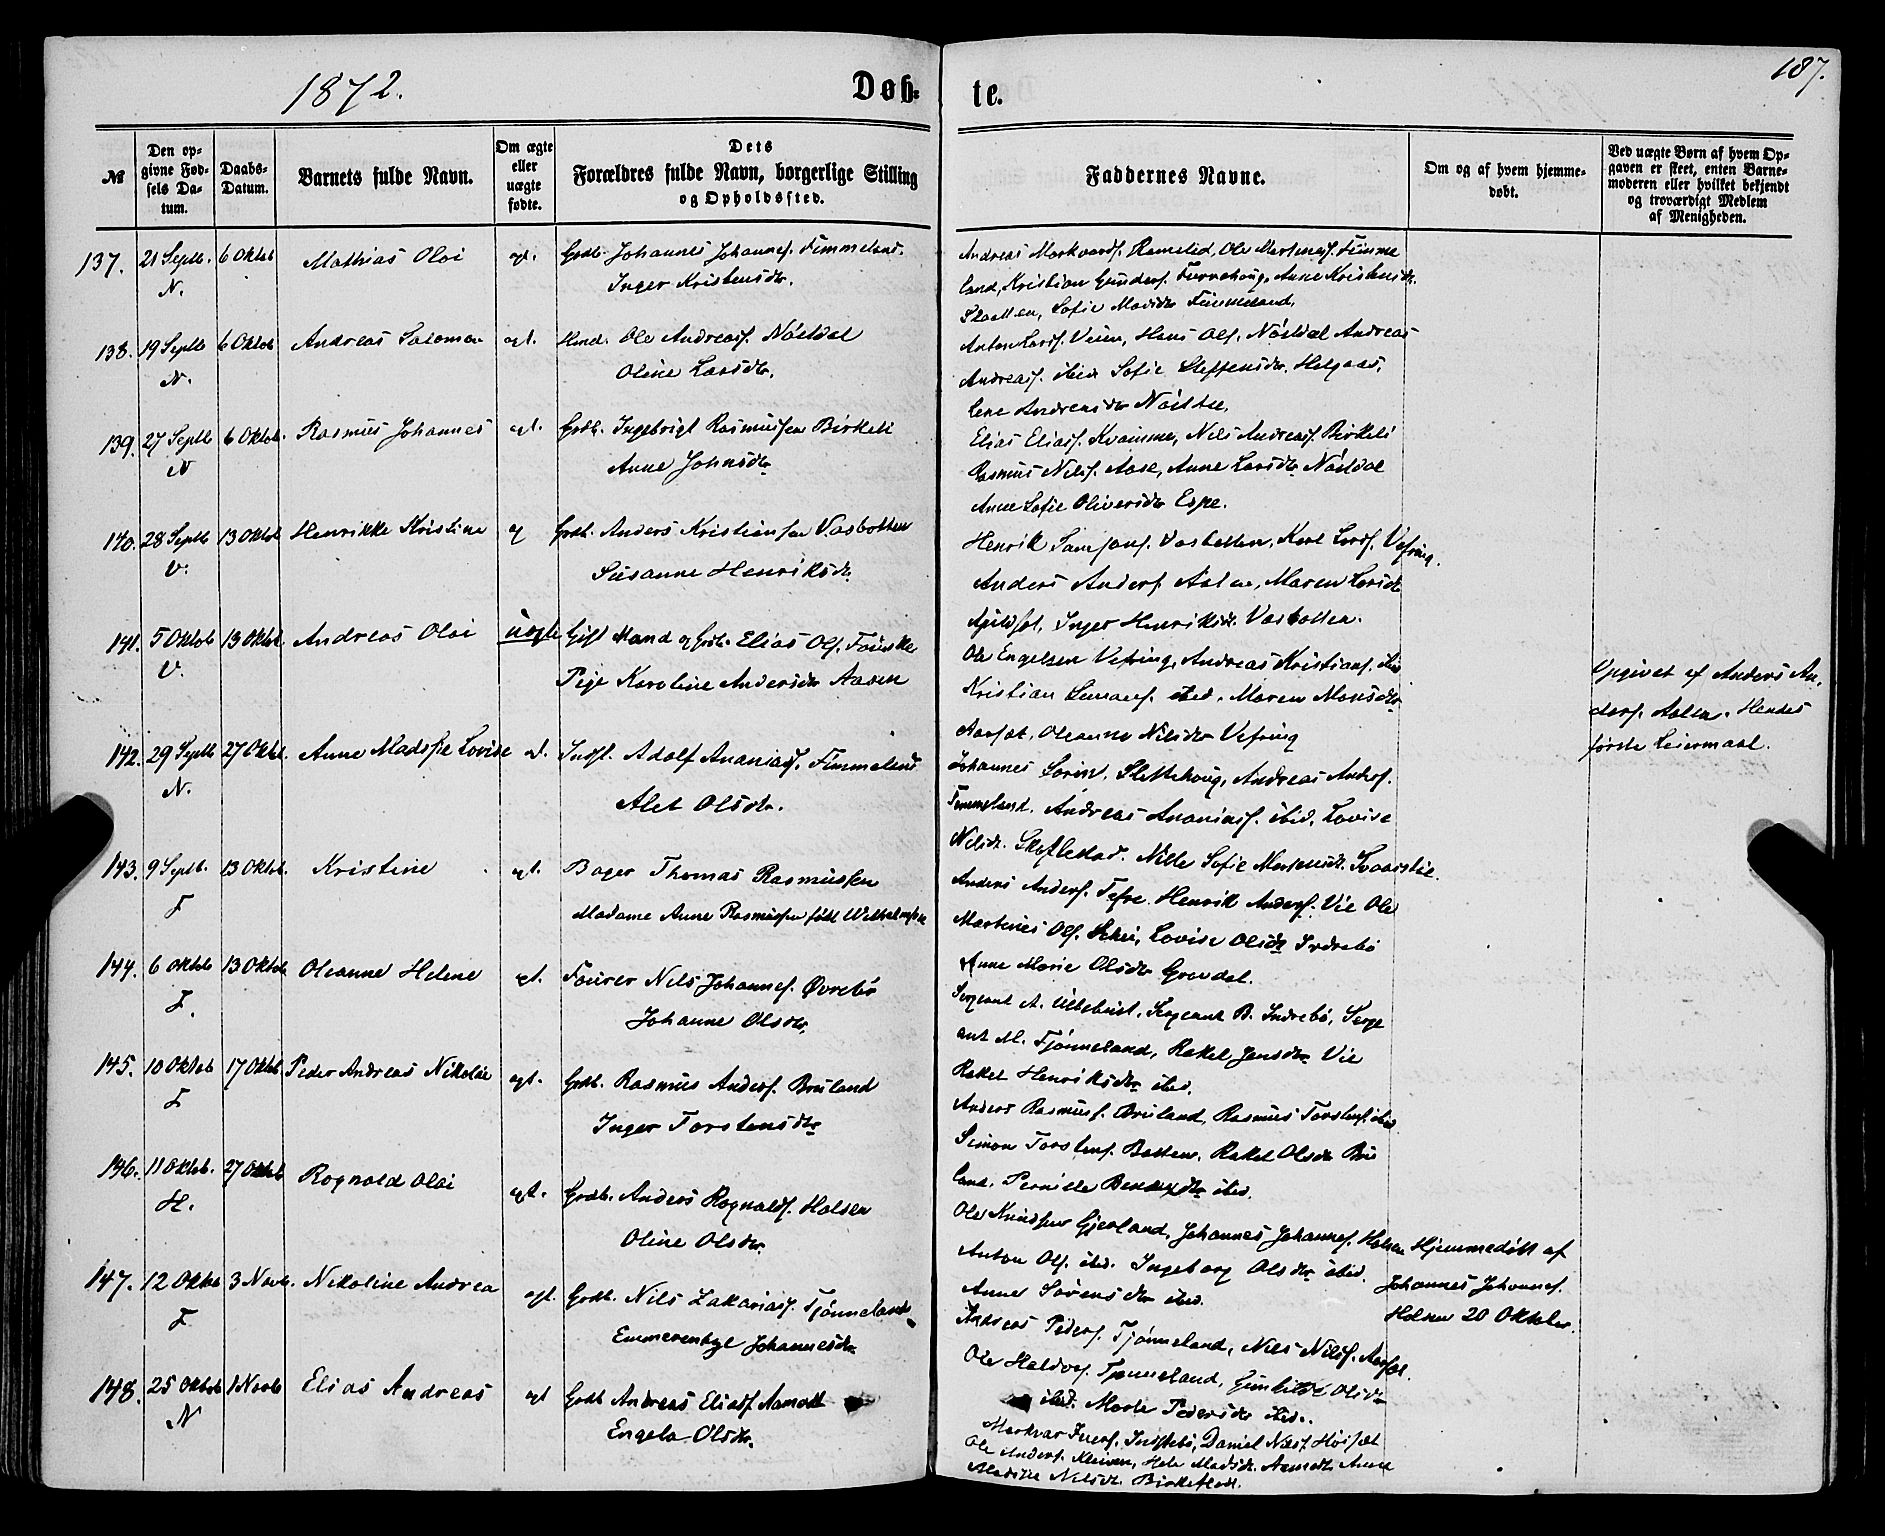 1872.
Døb-
te.
187.
№
Den op-
givne Fød-
sels Da-
tum.
Daabs-
Datum.
Barnets fulde Navn.
Om ægte
eller
uægte
fødte.
Dets
Forældres fulde Navn, borgerlige Stilling
og Opholdssted.
Faddernes Navne.
Om og af hvem hjemme-
døbt.
Ved uægte Børn af hvem Op-
gaven er skeet, enten Barne-
moderen eller hvilket bekjendt
og troværdigt Medlem
af Menigheden.
137. 21 Septb. 6 Oktob Mathias Olai egt. Grdb. Johannes Johannesf. Fimmeland.
N. Inger Kristensdr.
Andreas Markvardf. Ramstad, Ole Martinusf. Fimme
land, Kristian Gunders. Furrehoug, Anne Kristensdr.
Sofie Madsdr Fimmeland.
138. 19 Septb 6 Oktob Andreas Salomon egt. Ole Andreasf. Nøstdal
N. Oline Larsdr.
Anton Larsf. Veien, Hans Olf. Nøstdal Andreas
Andreasf. ibid Sofie Steffensdr. Helgaas,
Lene Andreasdr Nøstdal.
139. 27 Septb 6 Oktob. Rasmus Johannes egt. Grdb. Ingebrigt Rasmussen Birkeli
N Anne Johnsdr
Elias Eliasf. Kvamme, Nils Andreasf. Birkeli
Rasmus Nilsf. Aase, Anne Larsdr Nøstdal
Anne Sofie Oliversdr Espe.
140. 28 Septb 13 Oktob Henrikke Kristine eg Grdb. Anders Kristiansen Vasbotten
V. Susanne Henriksdr.
Henrik Samsonf. Vasbotten, Karl Larsf. Vefring.
Anders Andersf. Aalen, Maren Larsdr
Inger Henriksdr. Vasbotten.
141. 5 Oktob 13 Oktob. Andreas Olai uegte Gift Mand og Grdb. Elias Olf. Fouske
V. Pige Karoline Andersdr Aasen
Ole Engelsen Vefring, Andreas Kristianf. ibid
Kristian ibid, Maren Monsdr
Aarset, Oleanne Nilsdr Vefring
Opgivet af Anders An-
dersf. Aalen. Hendes
første Leiermaal.
142. 29 Septb 27 Oktob. Anne Lovise et. Indst. Adolf Ananiasf. Fimmeland
N. Alet Olsdr.
Johannes Sørin, Slettehoug, Andreas Andersf.
Fimmeland. Andreas Ananiasf. ibid. Lovise
Nilsdr. Nille Sofie
143. 9 Septb. 13 Oktob. Kristine egt. Bager Thomas Rasmussen
F Madame Anne Rasmussen født
Anders Andersf. Tefre Henrik Andersf. Vie Ole
Martinus Olf. Schei, Lovise Olsdr Indrebø
Anne Marie Olsdr Grovdal.
144. 6 Oktob 13 Oktob Oleanne Helene egt. Fourer Nils Johannesf. Øvrebø
F. Johanne Olsdr.
Sergeant A. Ullebust, Sergeant B. Indrebø, Serge
ant M. Tjønneland, Rakel Jensdr Vie
Rakel Henriksdr ibid.
145. 10 Oktob 17 Oktob Peder Andreas Nikolai egt. Grdb. Rasmus Andersf. Bruland
F Inger Torstensdr
Anders Rasmusf. Bruland, Rasmus Torstenf. ibid
Simon Torstenf. Botten, Rakel Olsdr Bru
land, Pernille ibid.
146. 11 Oktob. 27 Oktob Rognald Olai egt. Grdb. Anders Rognaldf. Holsen
H. Oline Olsdr.
Ole Knudsen Gjerland, Johannes Johannesf. Holsen
Anton Olf. ibid. Ingeborg Olsdr ibid.
Anne Sørensdr ibid.
Hjemmedøbt af
Johannes Johannesf.
Holsen 20 Oktober.
147. 12 Oktob 3 Novb. Nikoline Andrea egt. Grdb. Nils Zakariasf. Tjønneland
F Emmerentze Johannesdr
Andreas Pedersf. Tjønneland, Nils Nilsf. Aarset.
Ole Haldorf. Tjønneland, Gunhilde Olsdr
ibid. Marte Pedersdr ibid.
148. 25 Oktob 1 Novb Elias Andreas egt Grdb Andreas Eliasf. Aamodt
N Engela Olsdr.
Daniel Nilsf. Høisæt
Ole Andersf. Kleiven, Madsdr. Aamodt Anne
Nilsdr. Birkeflod.